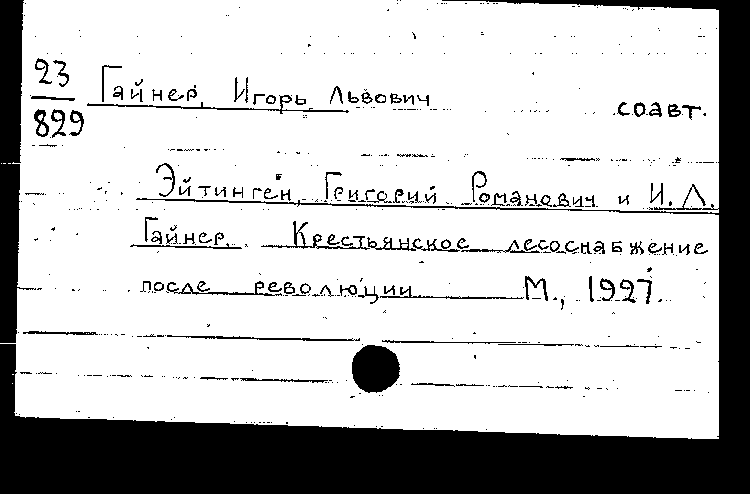 23 Гайнер, Игорь Львович
829 соавт.
Эйтинген, Григорий Романович и И. Л.
Гайнер. Крестьянское лесоснабжение
после революции М., 1927.